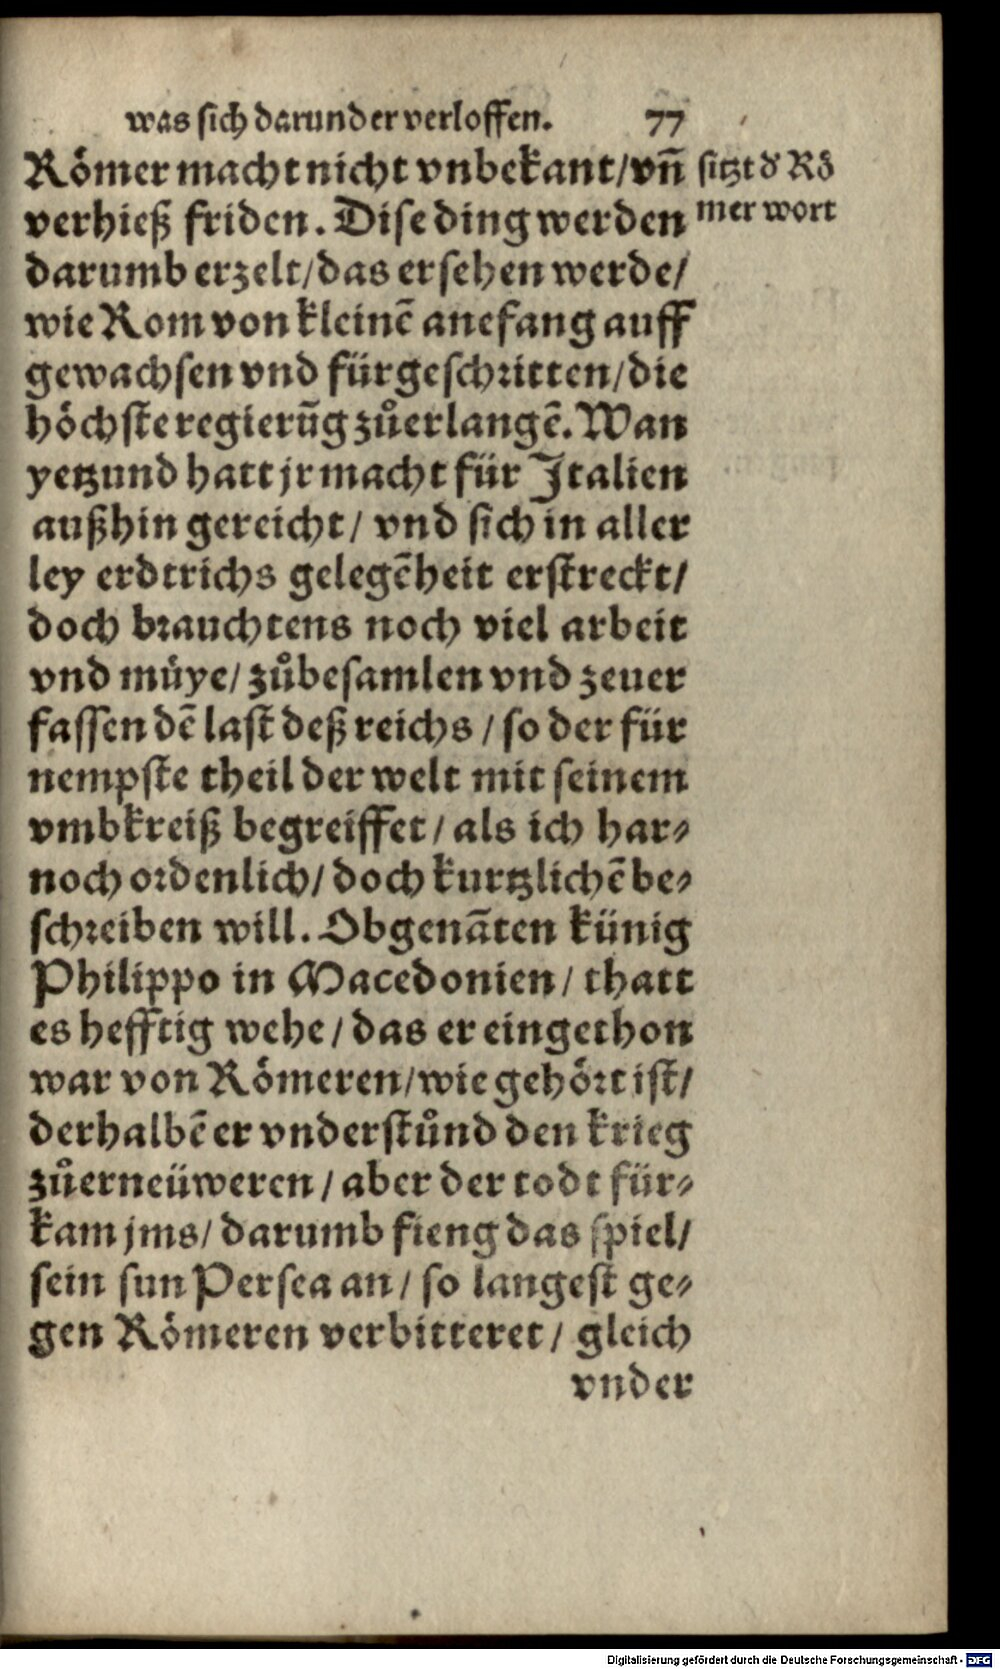 was sich darunder verloffen. 77
Römer macht nicht vnbekant/ vñ
verhieß friden. Dise ding werden
darumb erzelt/ das ersehen werde/
wie Rom von kleinē anefang auff
gewachsen vnd fürgeschritten/ die
höchste regierūg zůerlangē. Wan
yetzund hatt jr macht für Italien
außhin gereicht/ vnd sich in aller
ley erdtrichs gelegēheit erstreckt/
doch brauchtens noch viel arbeit
vnd müye/ zůbesamlen vnd zeuer
fassen dē last deß reichs/ so der für
nempste theil der welt mit seinem
vmbkreiß begreiffet/ als ich har⸗
noch ordenlich/ doch kurtzlichē be⸗
schreiben will. Obgenāten künig
Philippo in Macedonien/ thatt
es hefftig wehe/ das er eingethon
war von Römeren/ wie gehört ist/
derhalbē er vnderstůnd den krieg
zůerneüweren/ aber der todt für⸗
kam jms/ darumb fieng das spiel/
sein sun Persea an/ so langest ge⸗
gen Römeren verbitteret/ gleich
vnder
sitzt d' Rö
mer wort
Digitalisierung gefördert durch die Deutsche Forschungsgemeinschaft - DFG